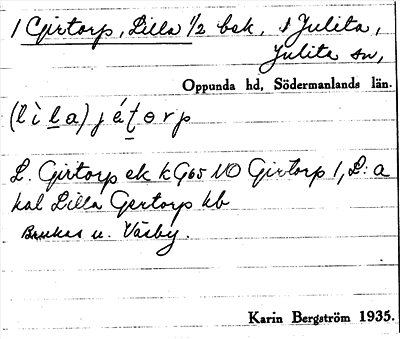 1 Girtorp, Lilla 1/2 bsk, i Julita,
Julita sn,
Oppunda hd, Södermanlands län.
(lìla) jétorp
L. Girtorp ek k G65 NO Girtorp 1, L: a
kal Lilla Gertorp kb
Brukas u. Väsby.
Karin Bergström 1935.